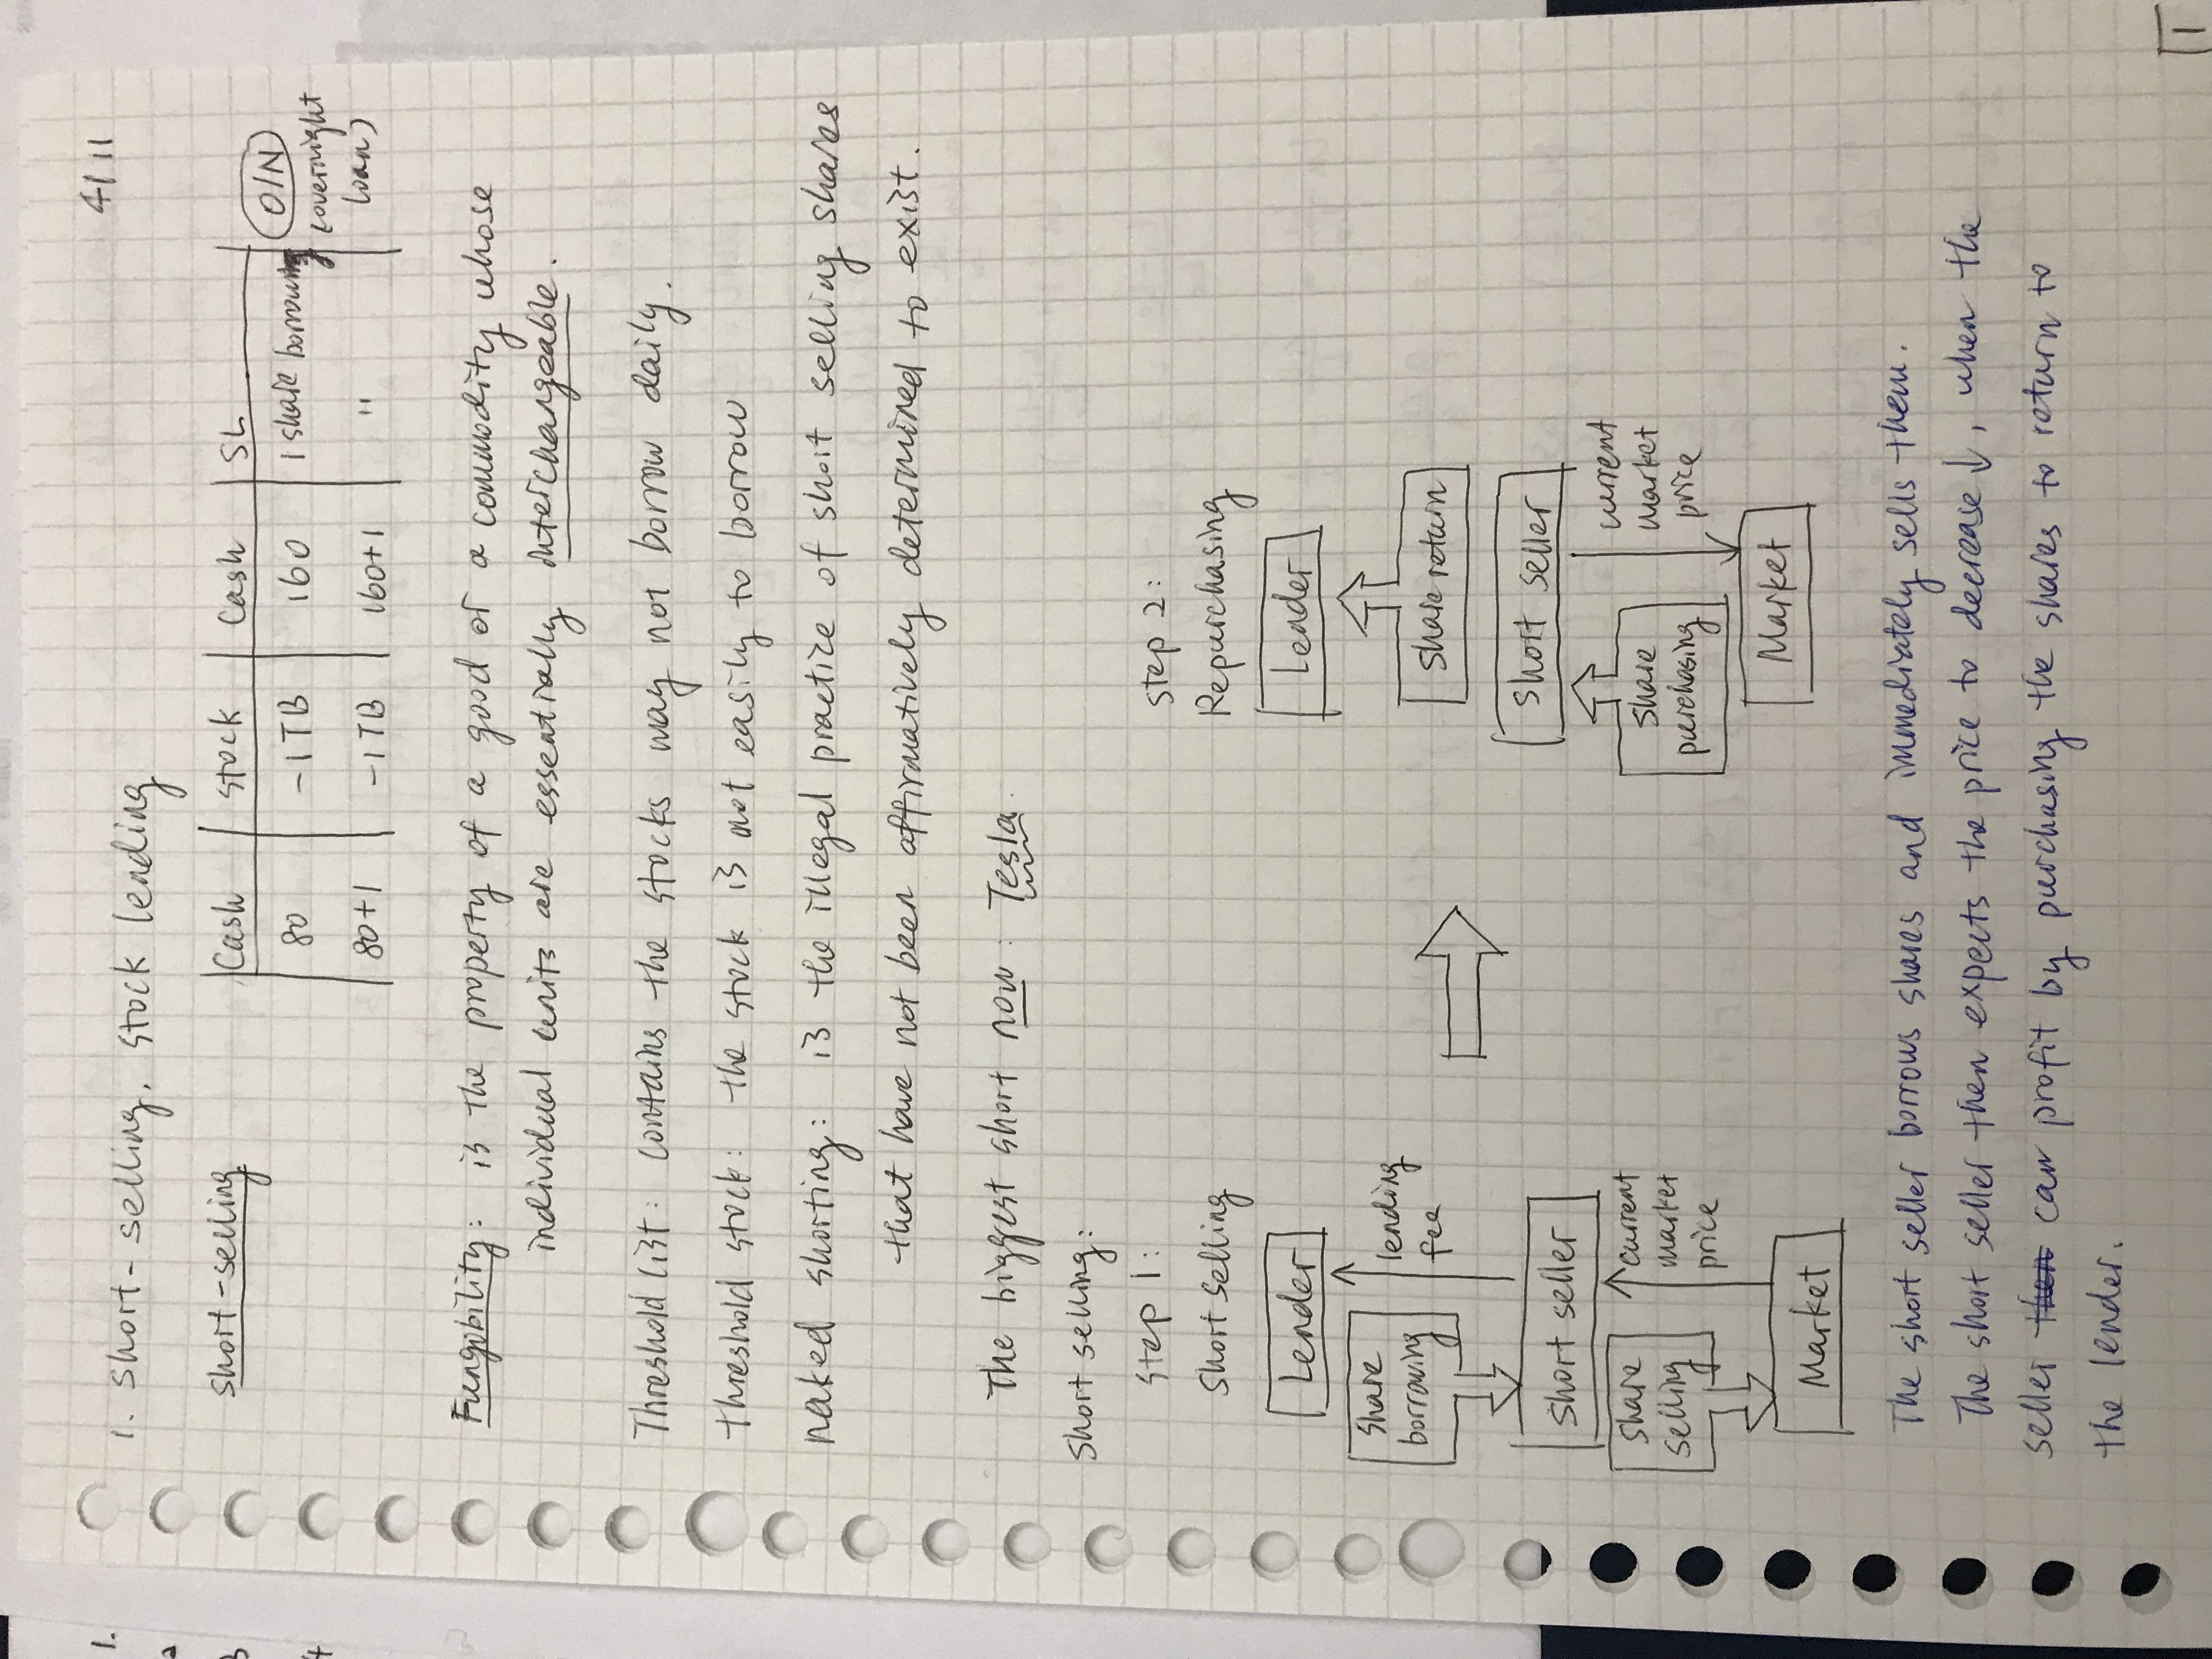 4/11
1. Short-selling, stock lending
short-selling
Cash stock Cash SL
80 -1TB 160 1 share borrowing O/N
(overnight
80+1 -1TB 160+1 " loan)
Fungobility: is the property of a good or a commodity whose
individual units are essentially interchangeable.
Threshold list: contains the stocks may not borrow daily.
threshold stock: the stock is not easily to borrow
naked shorting: is the illegal practice of short selling shares
that have not been affirmatively determined to exist.
The biggest short now: Tesla.
Short selling:
step 1:
Short selling
Lender
share
borrowing
lending
fee
short seller
share
selling
current
market
price
Market
step 2:
Repurchasing
Lender
share return
short seller
share
purchasing
current
market
price
Market
The short seller borrows shares and immediately sells them.
The short seller then expects the price to decrease ↓, when the
seller then can profit by purchasing the shares to return to
the lender.
1
1.
2
3
4